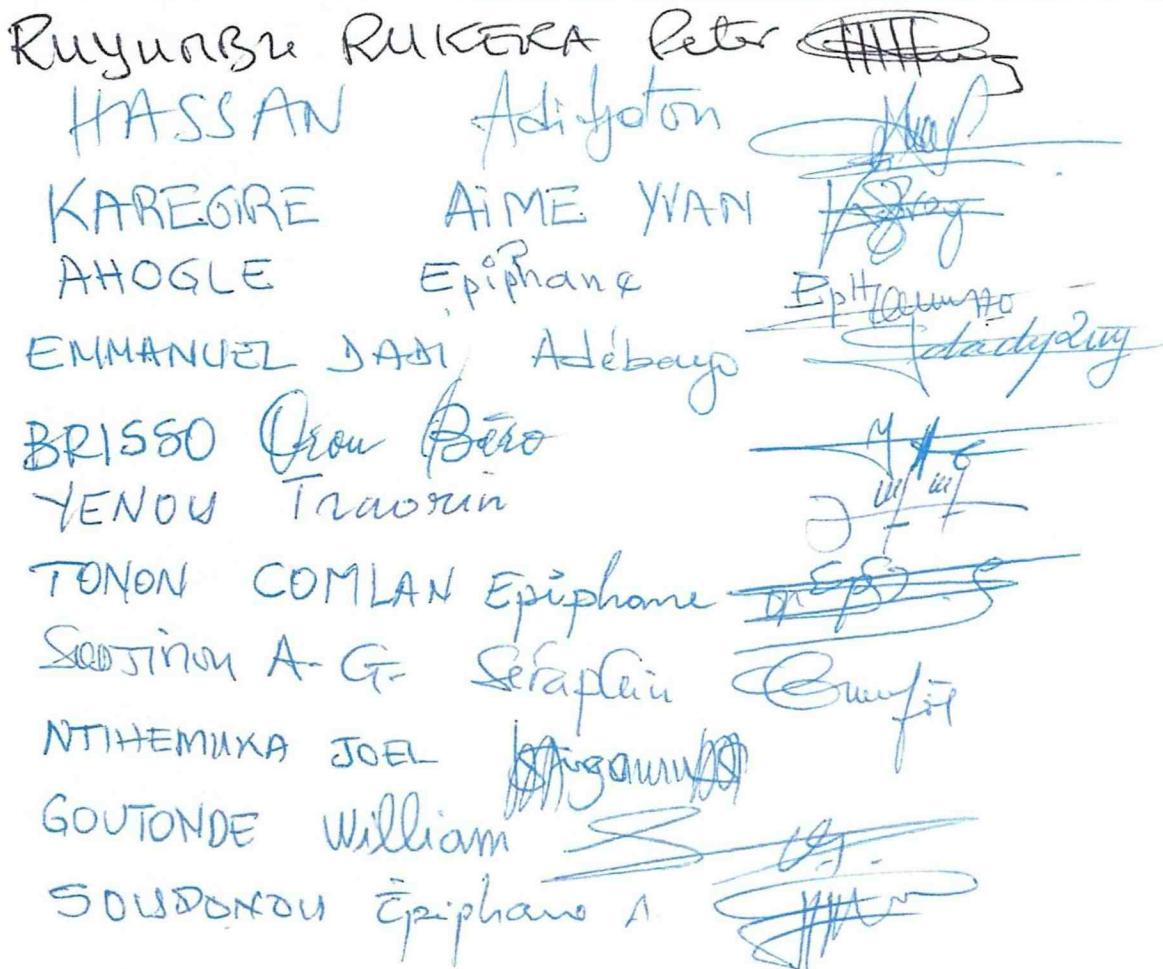 RUYUMBU RUKERA Peter
HASSAN Adifjoton
KAREGIRE AIME YVAN
AHOGLE Epiphane
EMMANUEL DADI Adébayo
BRISSO Orou Béro
YENOU Traorin
TONON COMLAN Epiphane
A-G. Séraphin
NTIHEMUKA JOEL
GOUTONDE William
SOUDONOU Épiphane A